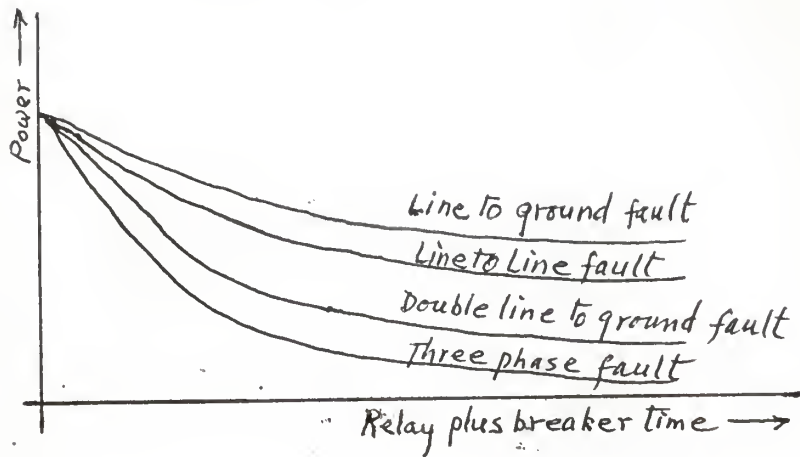 Power →
Line to ground fault
Line to Line fault
Double line to ground fault
Three phase fault
Relay plus breaker time →